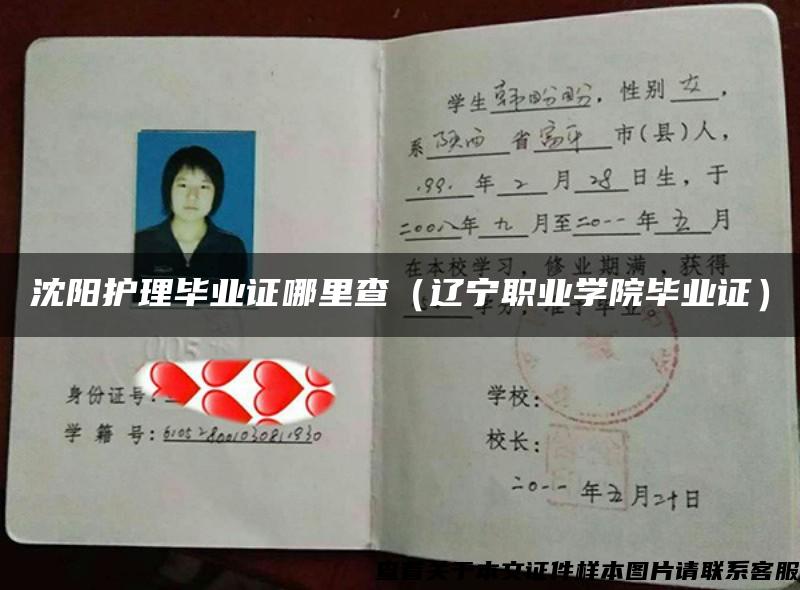 学生韩盼盼，性别女，
系陕西省富平市(县)人，
1991年2月28日生，于
二00八年九月至二0一一年五月
在本校学习，修业期满，获得
沈阳护理毕业证哪里查（辽宁职业学院毕业证）
学分，准予毕业。
005
身份证号:
学籍号:610528001030811930
学校:
校长:
二0一一年五月二十日
查看关于本文证件样本图片请联系客服